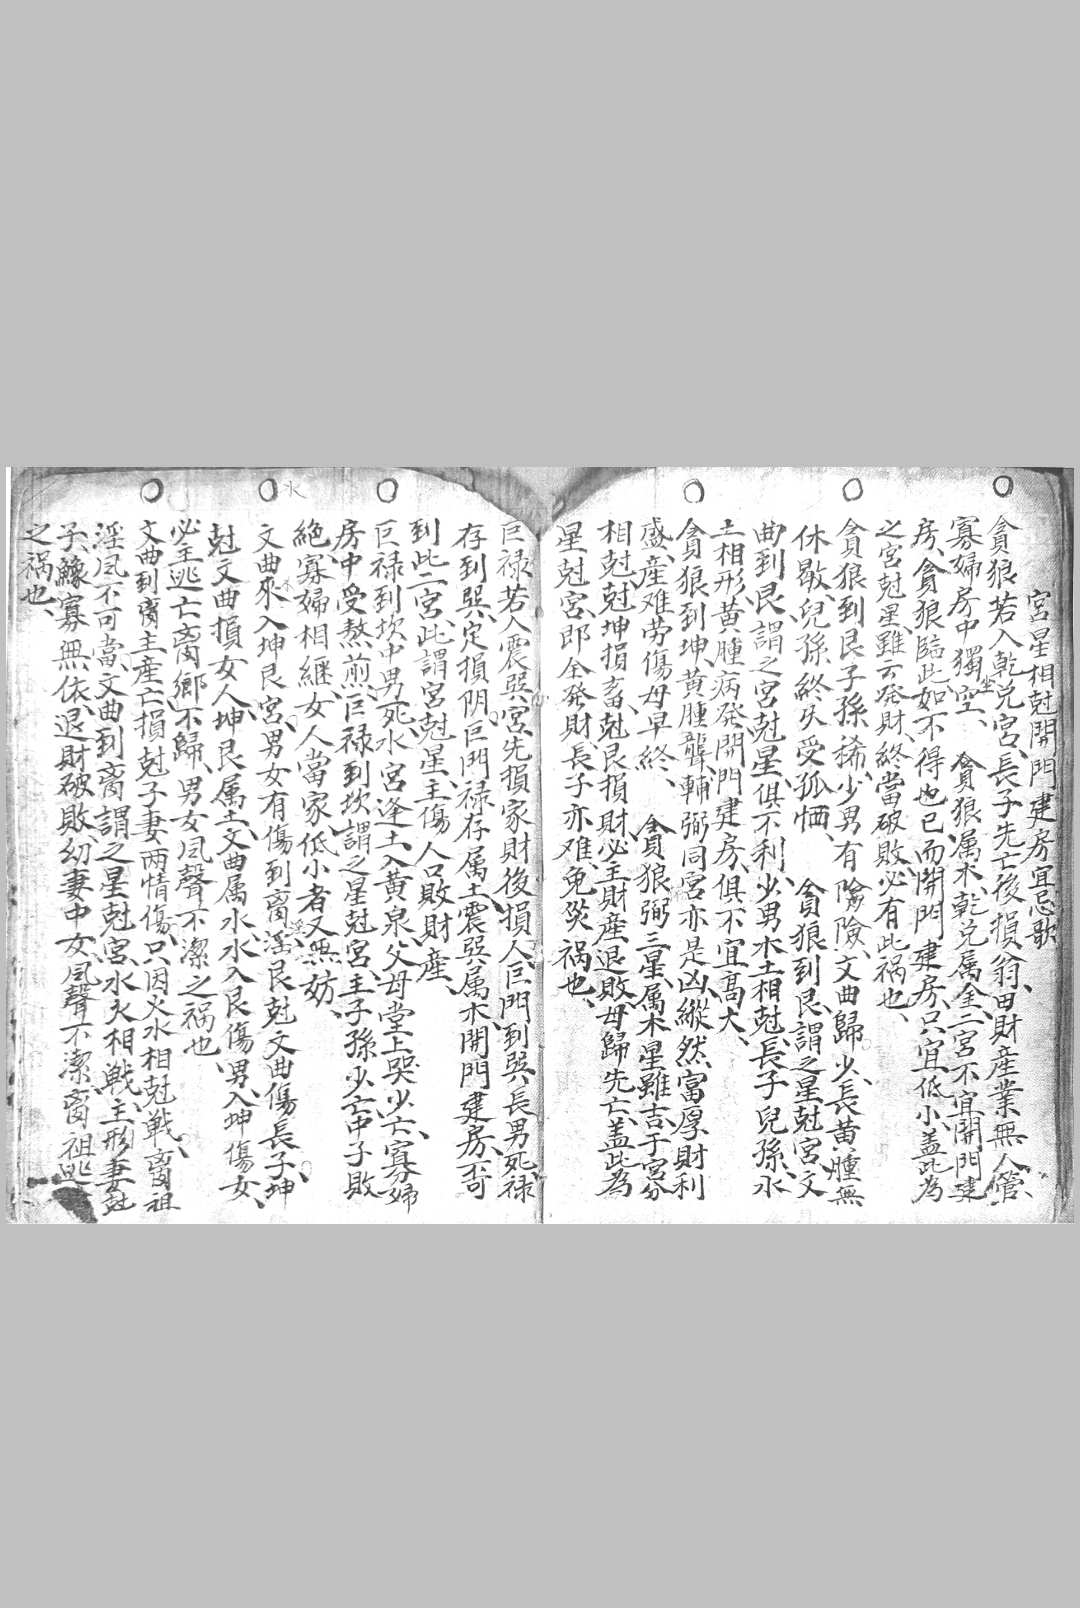 宮星相尅開門建房宜忌歌
貪狼若入乾兑宮、長子先亡後損翁、田財産業無人管、
寡婦房中獨坐空、貪狼属木、乾兑属金、二宮不宜開門建
房、貪狼臨此如不得也已而開門建房、只宜低小、盖此為
之宮尅星、雖云発財、終當破敗、必有此祸也、
貪狼到艮子孫稀、少男有險險、文曲歸少、長黄腫無
休歇、兒孫終久受孤恓、貪狼到艮、謂之星尅宮、文
曲到艮、謂之宮尅星、俱不利、少男木土相尅、長子兒孫、水
土相刑、黄腫病発、開門建房、俱不宜高大、
貪狼到坤、黄腫聾、輔弼同宮亦是凶、縱然富厚財利
盛、産难劳傷母早終、貪狼弼三星、属木星、雖吉于宮分
相尅、尅坤損畜、尅艮損財、必主財産退敗、母歸先亡、盖此為
星尅宮、即全発財、長子亦难免災祸也、
巨禄若入震巽宮、先損家財後損人、巨門到巽、長男死、禄
存到巽、定損阴、巨門禄存属土、震巽属木、開門建房、不可
到此二宮、此謂宮尅星、主傷人口、敗財産、
巨禄到坎中男死、水宮逢土入黄泉、父母堂上哭少亡、寡婦
房中受熬煎、巨禄到坎、謂之星尅宮、主子孫少亡、中子敗
絕、寡婦相継、女人當家、低小者又無妨、
文曲來入坤艮宮、男女有傷到离淫、艮尅文曲傷長子、坤
尅文曲損女人、坤艮属土、文曲属水、水入艮傷男、入坤傷女、
必主逃亡离鄉、不歸、男女風聲不潔之祸也、
文曲到离主産亡、損尅子妻兩情傷、只因火水相尅戦、离祖
淫風不可當、文曲到离、謂之星尅宮、水火相戦、主刑妻尅
子、鰥寡無依、退財破敗、幼妻中女、風聲不潔、离祖逃亡
之祸也、